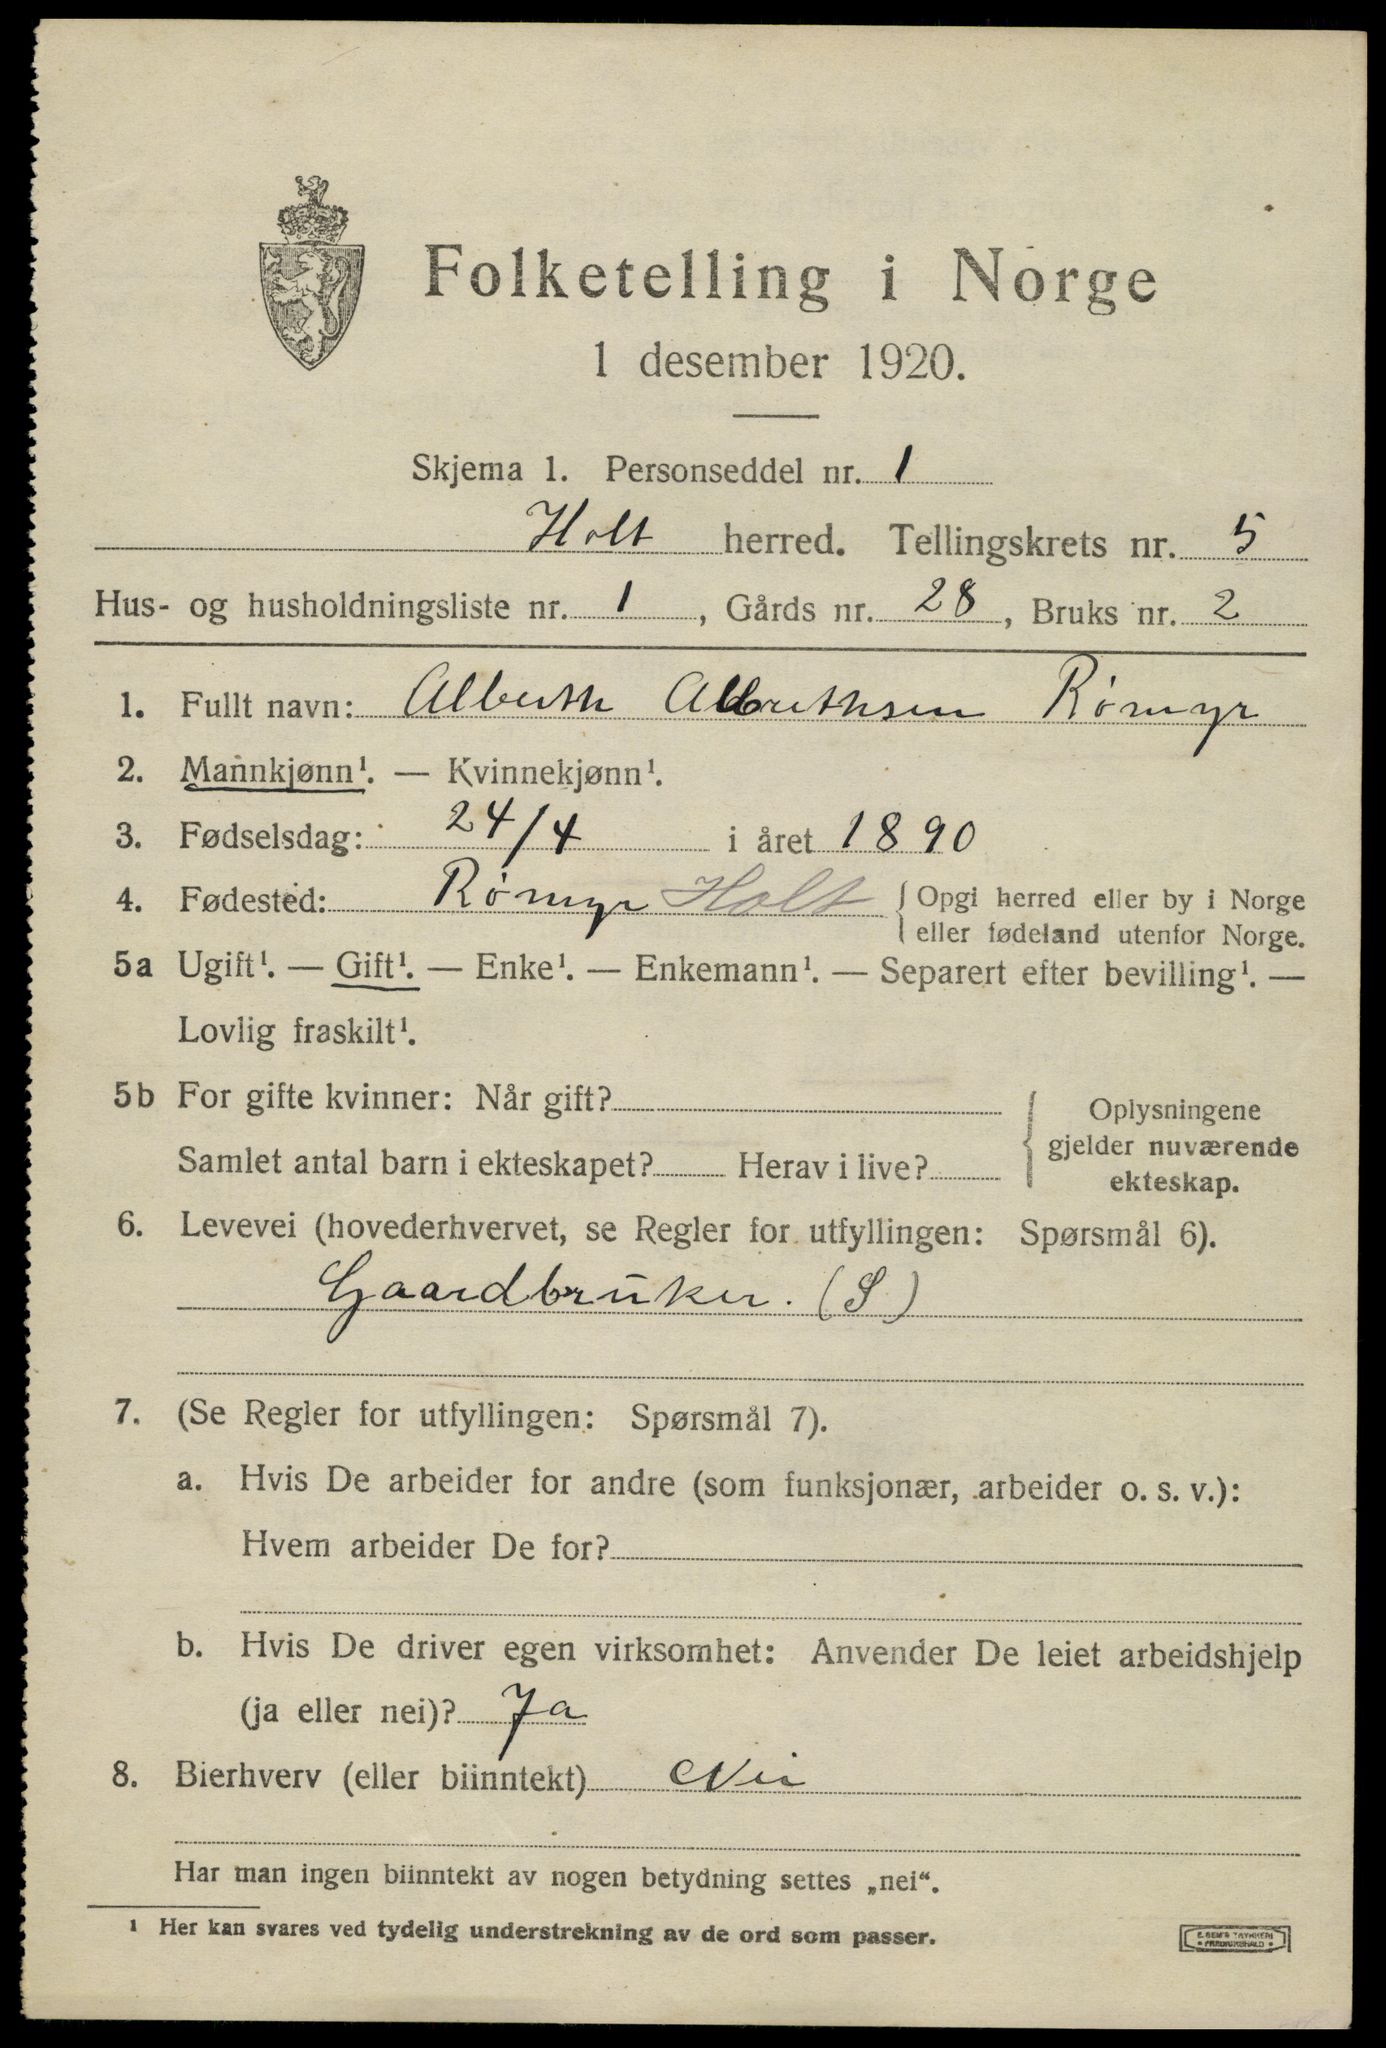 Folketelling i Norge
1 desember 1920.
Skjema 1. Personseddel nr. 1
Holt herred. Tellingskrets nr. 5
Hus- og husholdningsliste nr. 1, Gårds nr. 28, Bruks nr. 2
1. Fullt navn: Alberth Albrethsen Rømyr
2. Mannkjønn¹. — Kvinnekjønn¹.
3. Fødselsdag: 24/4 i året 1890
4. Fødested: Rømyr Holt { Opgi herred eller by i Norge
eller fødeland utenfor Norge.
5a Ugift¹. — Gift¹. — Enke¹. — Enkemann¹. — Separert efter bevilling¹. —
Lovlig fraskilt¹.
5b For gifte kvinner: Når gift?
Samlet antal barn i ekteskapet? Herav i live?
Oplysningene
gjelder nuværende
ekteskap.
6. Levevei (hovederhvervet, se Regler for utfyllingen: Spørsmål 6).
Gaardbrüker. (S)
7. (Se Regler for utfyllingen: Spørsmål 7).
a. Hvis De arbeider for andre (som funksjonær, arbeider o. s. v.):
Hvem arbeider De for?
b. Hvis De driver egen virksomhet: Anvender De leiet arbeidshjelp
(ja eller nei)? Ja
8. Bierhverv (eller biinntekt) Nei
Har man ingen biinntekt av nogen betydning settes „nei“.
1 Her kan svares ved tydelig understrekning av de ord som passer.
E. SEM'S TRYKKERI
• FREDRIKSHALD •